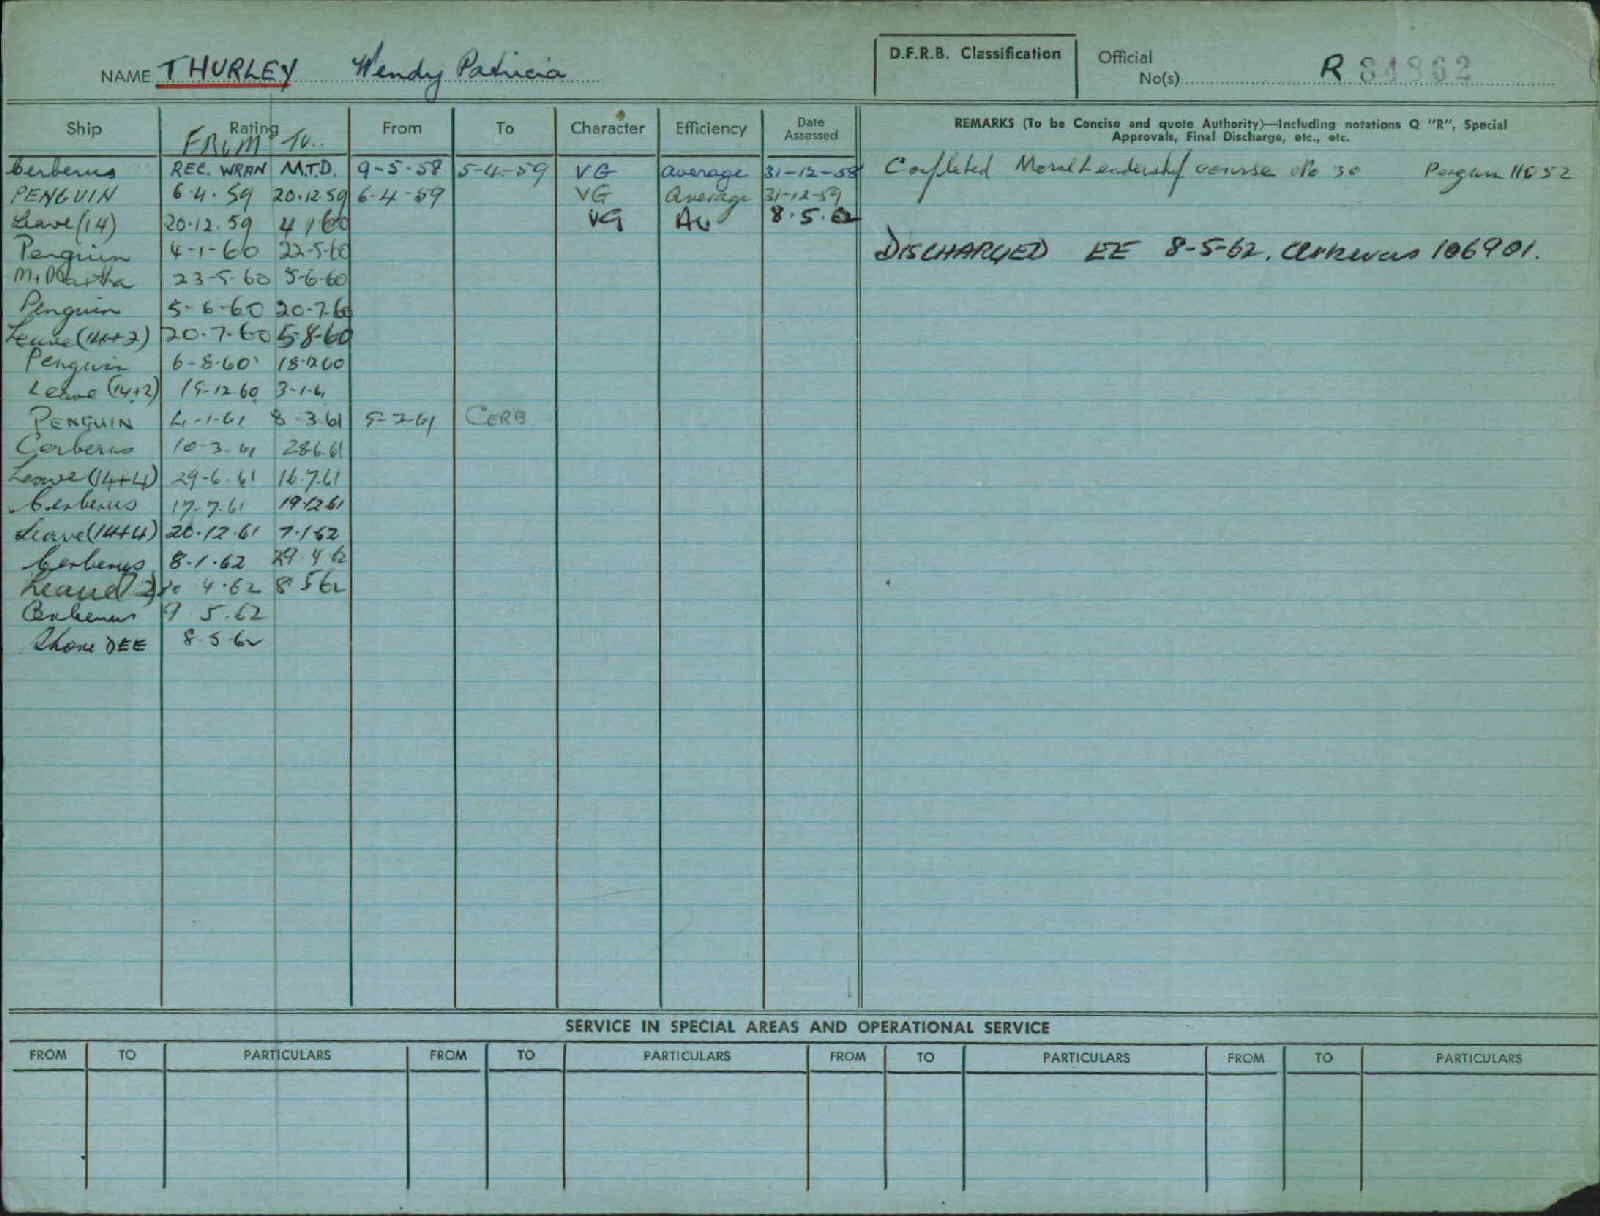 NAME THURLEY Wendy Patricia
D.F.R.B. Classification
Official No(s) R 84862
Ship Rating From To Character Efficiency Date Assessed REMARKS (To be Concise and quote Authority)—Including notations Q "R", Special Approvals, Final Discharge, etc., etc.
FROM To..
Cerberus REC. WRAN M.T.D. 9-5-58 5-4-59 VG average 31-12-58 Completed Moral Leadership course No 30 Penguin 11052
PENGUIN 6.4.59 20.12.59 6-4-59 VG Average 31-12-59
Leave (14) 20.12.59 4 1 60 VG Av 8.5.62
Penguin 4-1-60 22-5-60 DISCHARGED EE 8-5-62. Cerberus 106901.
23-5-60 5-6-60
Penguin 5-6-60 20-7-60
Leave (14+2) 20.7.60 5-8-60
Penguin 6-8-60 18.12.60
Leave (14+2) 19-12.60 3-1-61
PENGUIN 4-1-61 8-3.61 5-2-61 CERB
Cerberus 10-3.61 28.6.61
Leave (14+4) 29-6.61 16.7.61
Cerberus 17.7.61 19.12.61
Leave (14+4) 20.12.61 7.1.62
Cerberus 8.1.62 29.4.62
Leave 4.62 8 5 62
Cerberus 9.5.62
Shore DEE 8-5-62
SERVICE IN SPECIAL AREAS AND OPERATIONAL SERVICE
FROM TO PARTICULARS FROM TO PARTICULARS FROM TO PARTICULARS FROM TO PARTICULARS